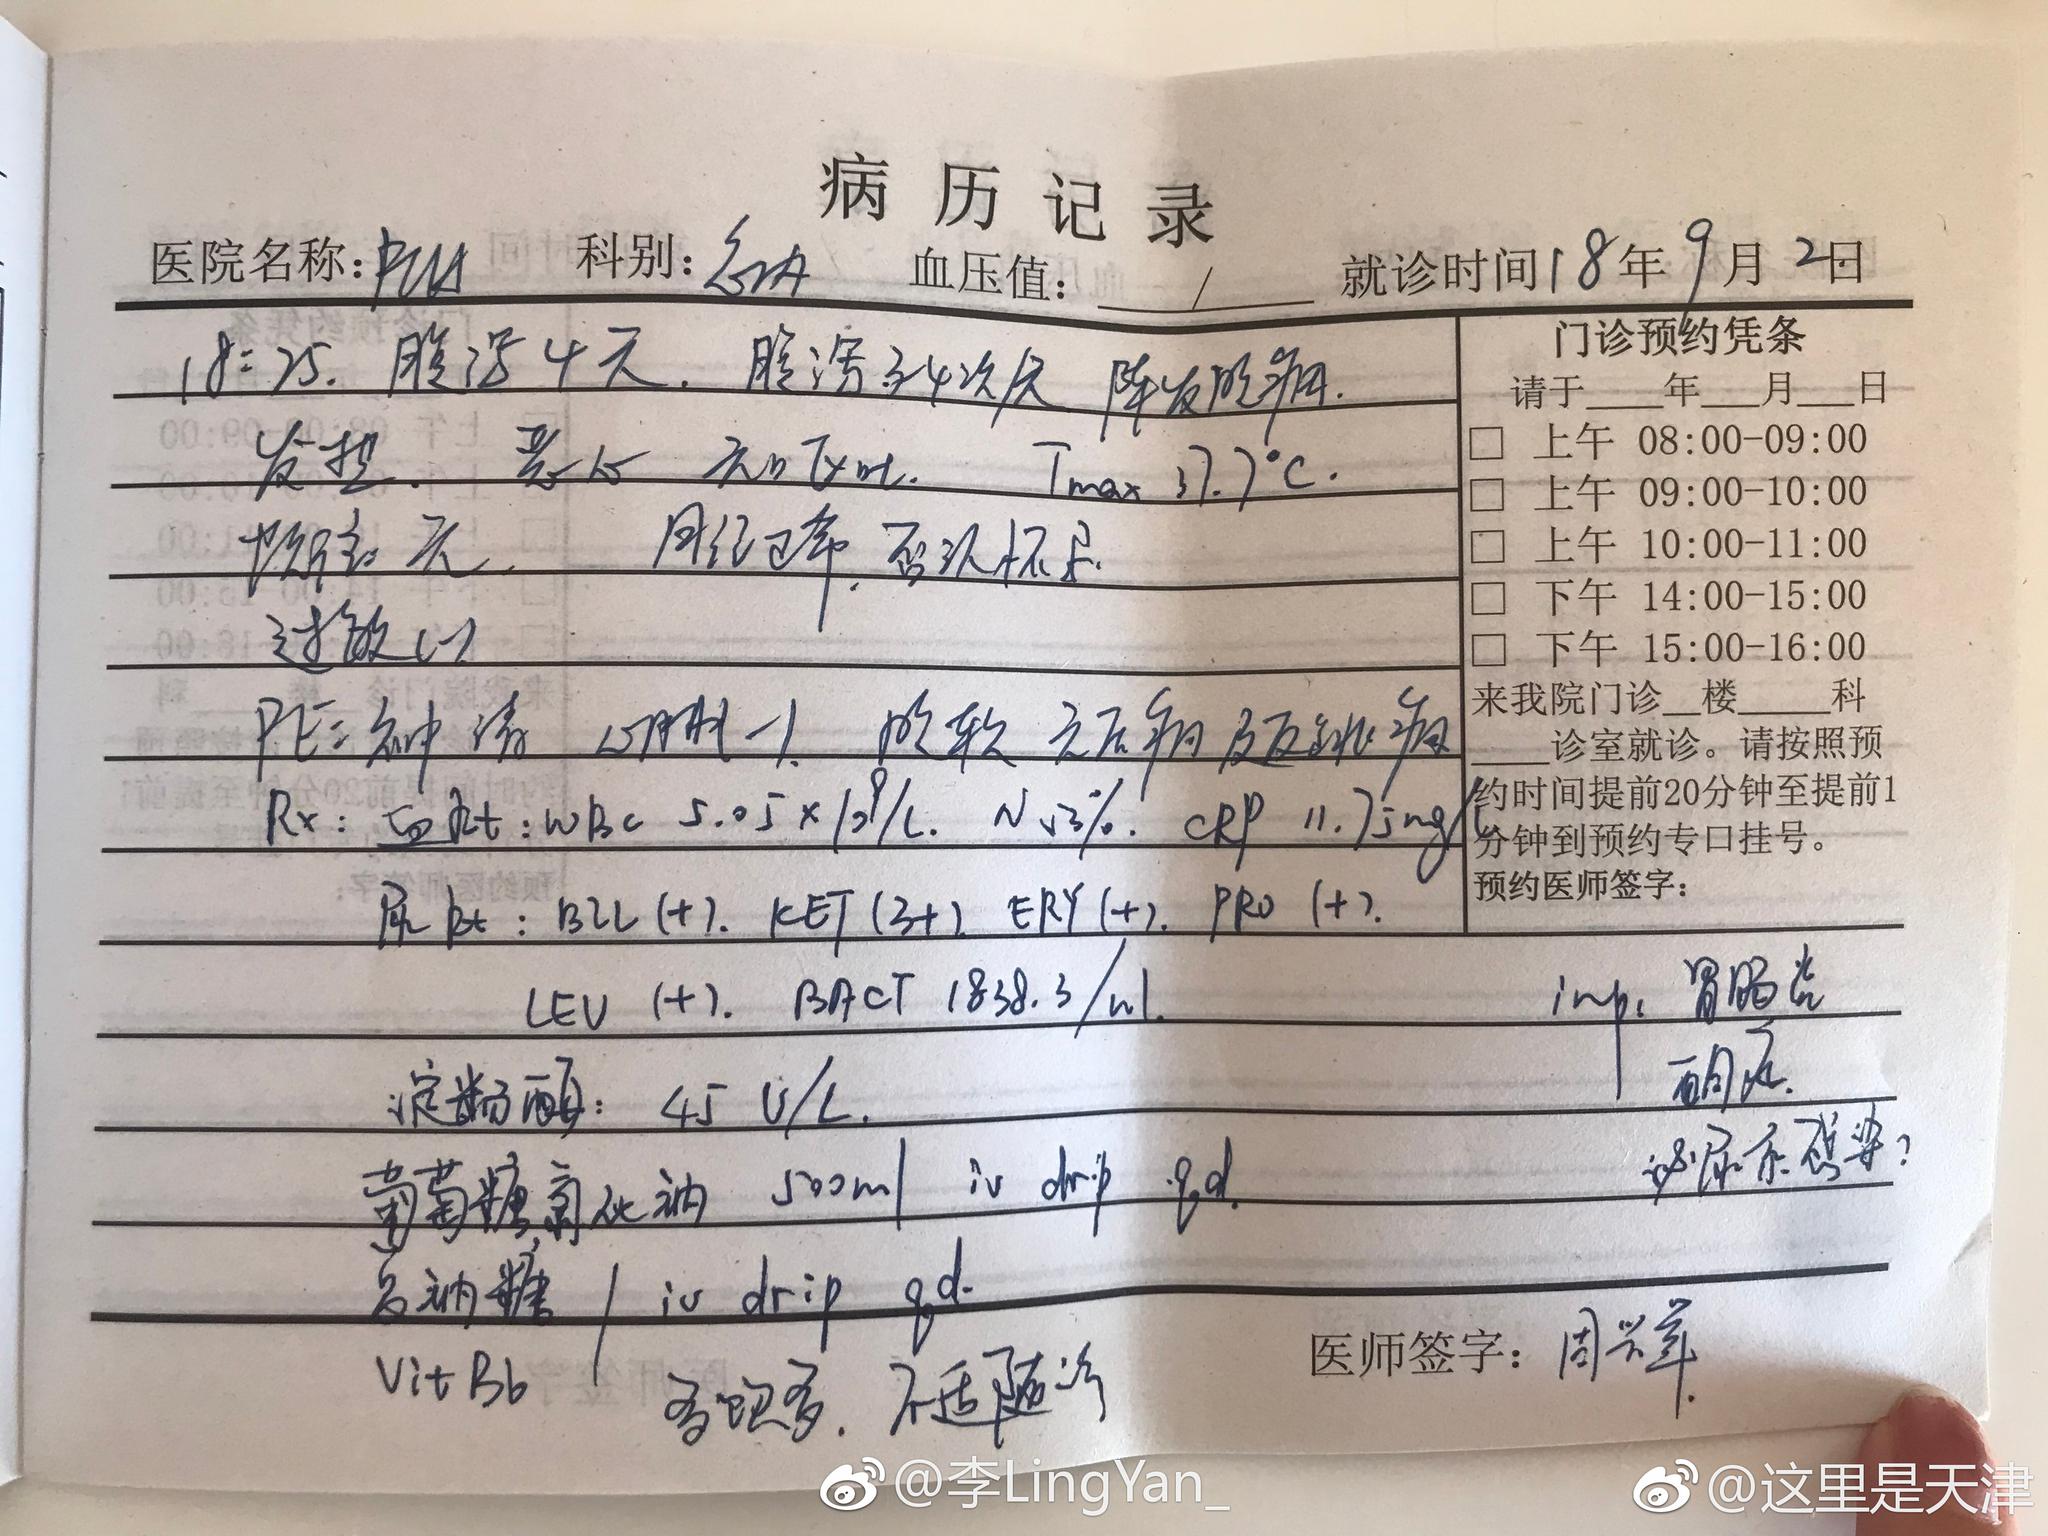 病历记录
医院名称: 科别:急诊 血压值: / 就诊时间18年9月2日
18:25. 腹泻4天. 腹泻3-4次/天 阵发腹痛.
发热. 恶心 无呕吐. Tmax 37.7℃.
既往无. 月经正常, 否认怀孕.
过敏(-)
PE: 神清 心肺(-). 腹软 无压痛及反跳痛
Rx: 血Rt: WBC 5.05×10⁹/L. N 53%. CRP 11.75mg/L
尿Rt: BIL(+). KET(3+) ERY(+). PRO(+).
LEU(+). BACT 1838.3/ul.
淀粉酶: 45 U/L.
葡萄糖氯化钠 500ml iv drip qd.
iv drip qd.
VitB6
多饮多, 不适随诊
imp: 胃肠炎
酮症.
泌尿系感染?
医师签字:周
门诊预约凭条
请于___年___月___日
□ 上午 08:00-09:00
□ 上午 09:00-10:00
□ 上午 10:00-11:00
□ 下午 14:00-15:00
□ 下午 15:00-16:00
来我院门诊__楼_____科
____诊室就诊。请按照预
约时间提前20分钟至提前1
分钟到预约专口挂号。
预约医师签字:
@李LingYan_
@这里是天津